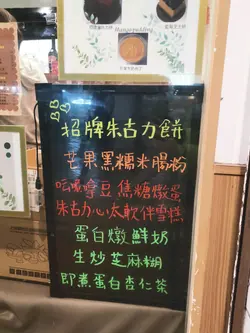 招牌朱古力餅
芒果黑糯米腸粉
呍呢拿豆焦糖燉蛋
朱古力心太軟伴雪糕
蛋白燉鮮奶
生炒芝麻糊
即煮蛋白杏仁茶